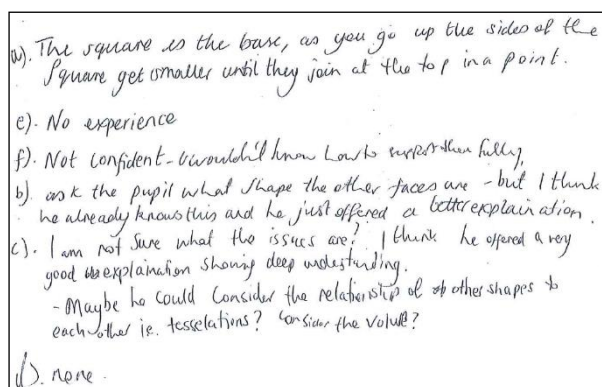 a). The square is the base, as you go up the sides of the
square get smaller until they join at the top in a point.
e). No experience
f). Not confident - I wouldn't know how to support them fully,
b). ask the pupil what shape the other faces are - but I think
he already knows this and he just offered a better explaination.
c). I am not sure what the issues are? I think he offered a very
good explaination showing deep understanding.
- Maybe he could consider the relationship of other shapes to
each other ie. tesselations? Consider the volume?
d). none.